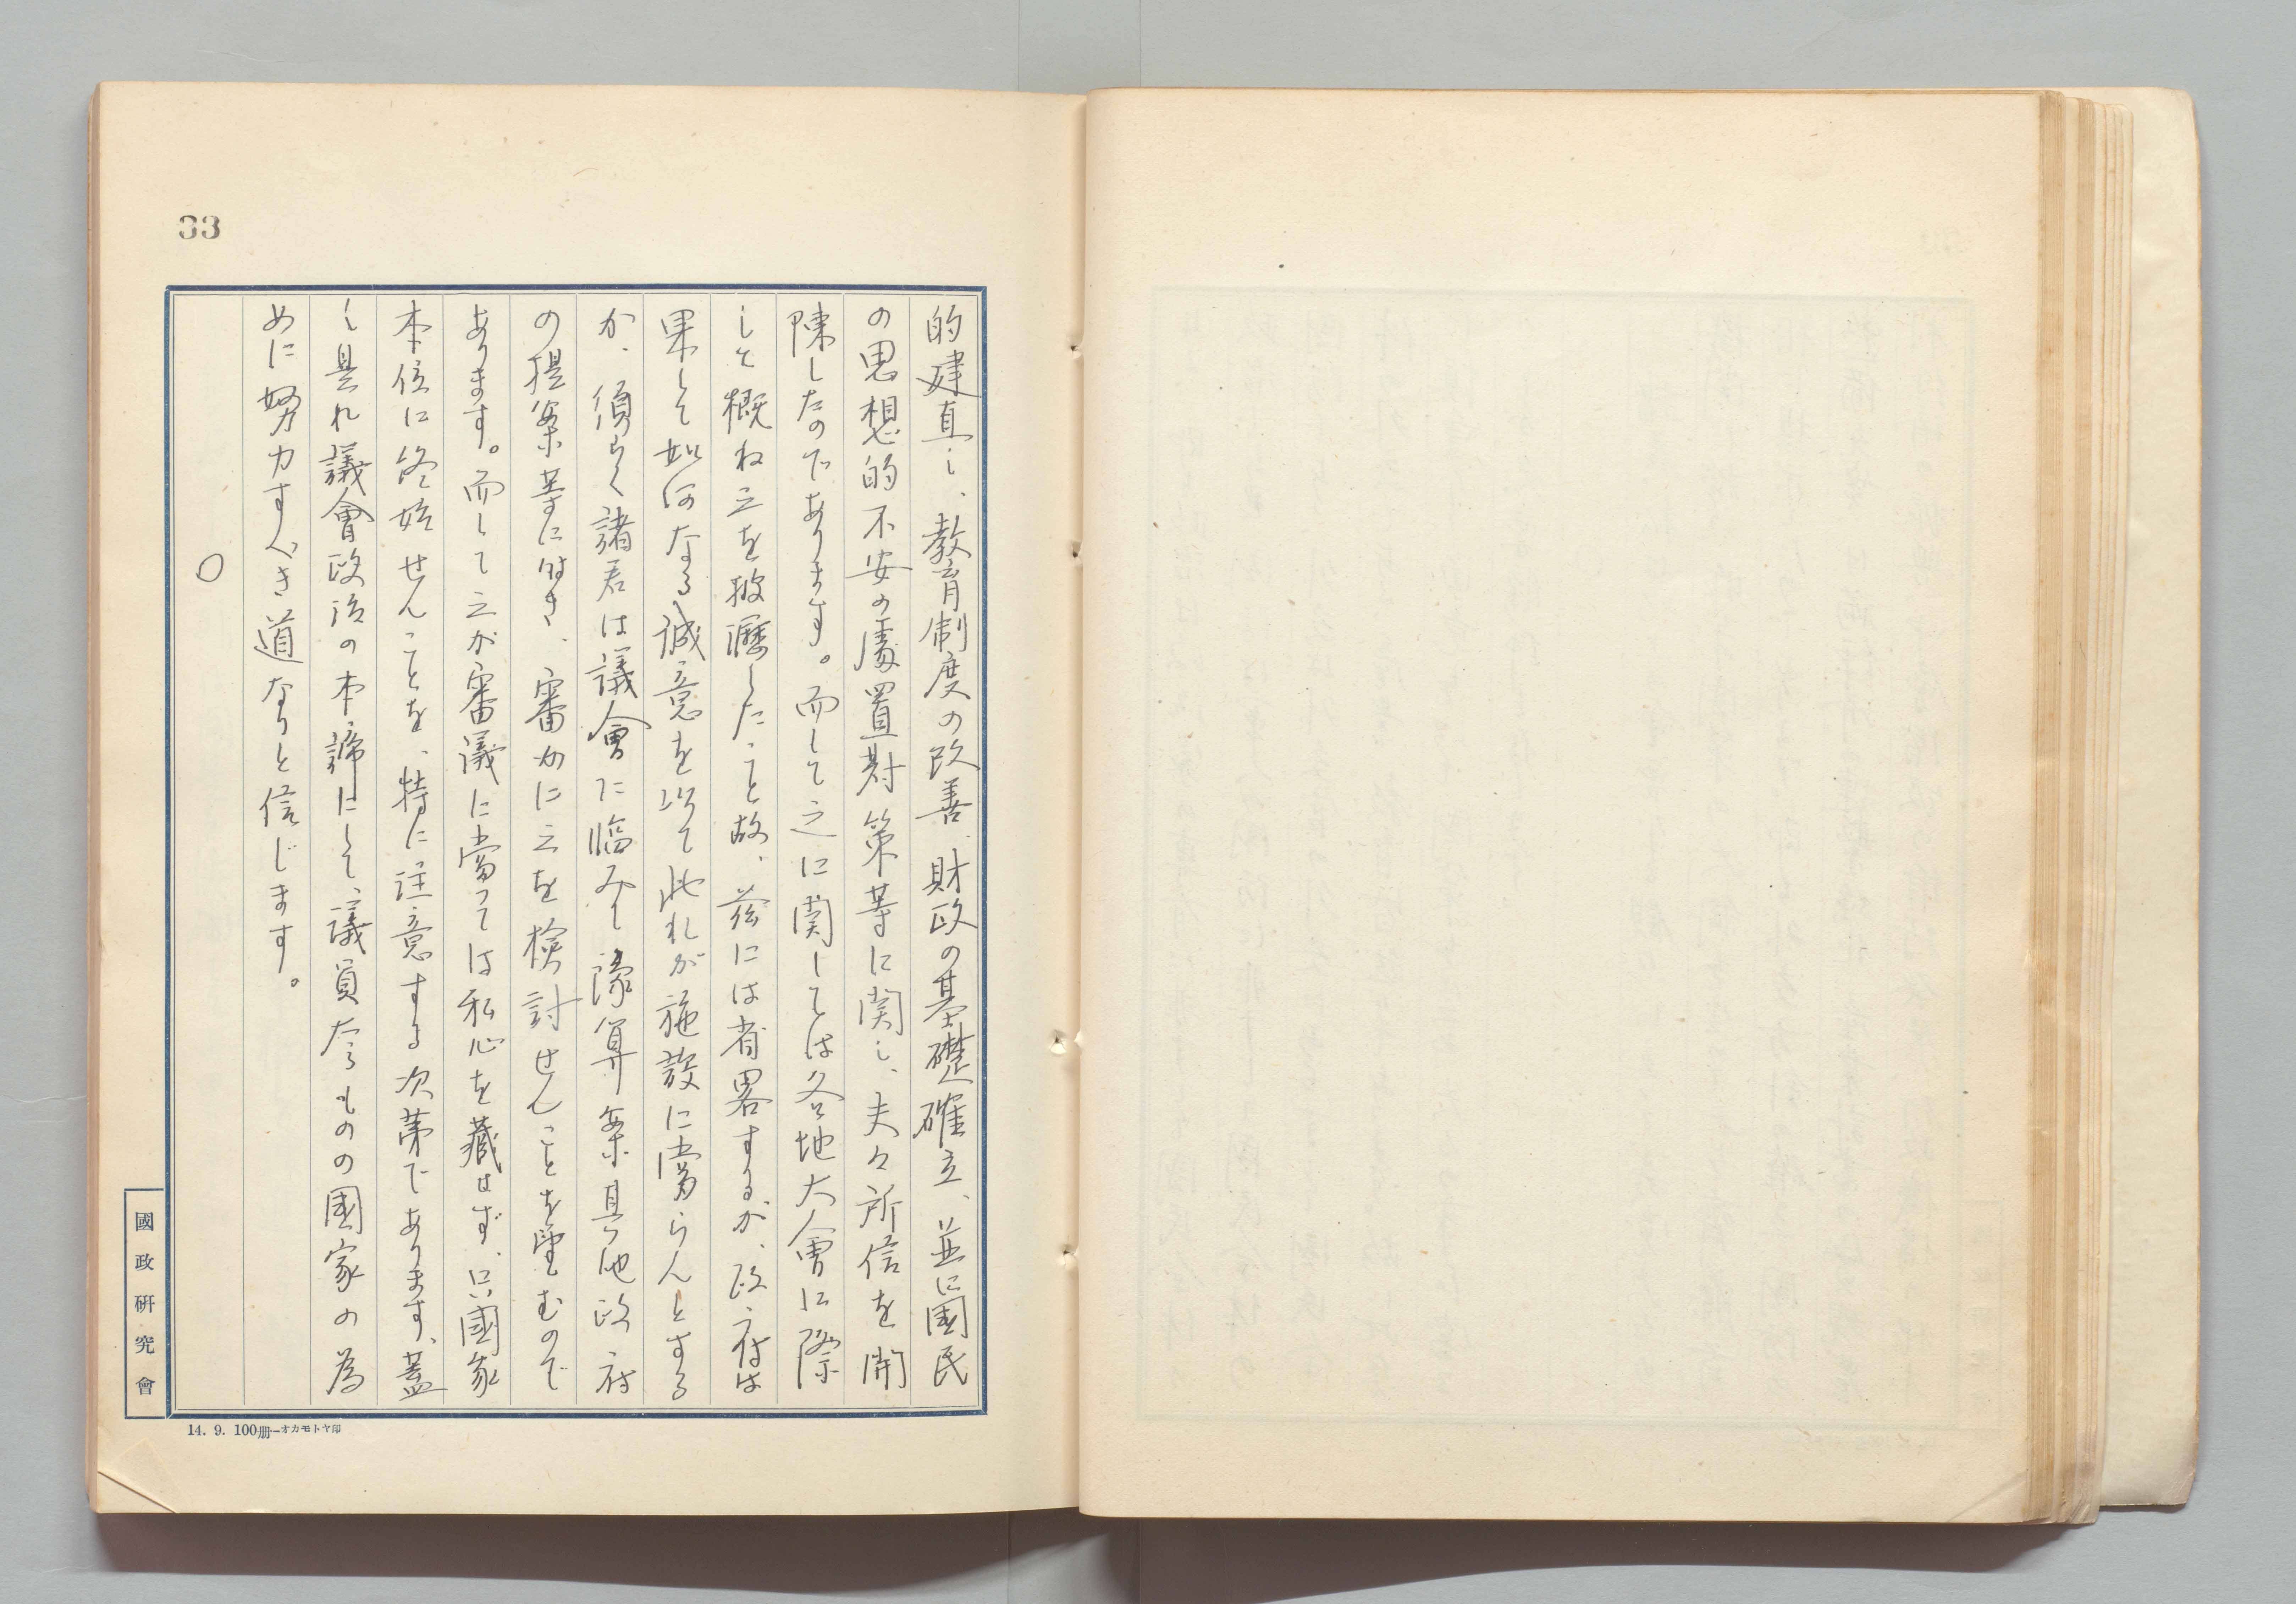 33
的建直し、教育制度の改善、財政の基礎確立、並に國民
の思想的不安の處置対策等に関し、夫々所信を開
陳したのであります。而して之に関しては各地大會に際
して概ね之を披瀝したこと故、茲には省畧するが、政府は
果して如何なる誠意を以て此れが施設に當らんとする
か、須らく諸君は議會に臨みて豫算案其他政府
の提案等に付き、審かに之を檢討せんことを望むので
あります。而して之が審議に當つては私心を藏はず、只國家
本位に終始せんことを、特に注意する次第であります、蓋
し是れ議會政治の本諦にして、議員たるものの國家の為
めに努力すべき道なりと信じます。
○
國政研究會
14. 9. 100册—オカモトヤ印